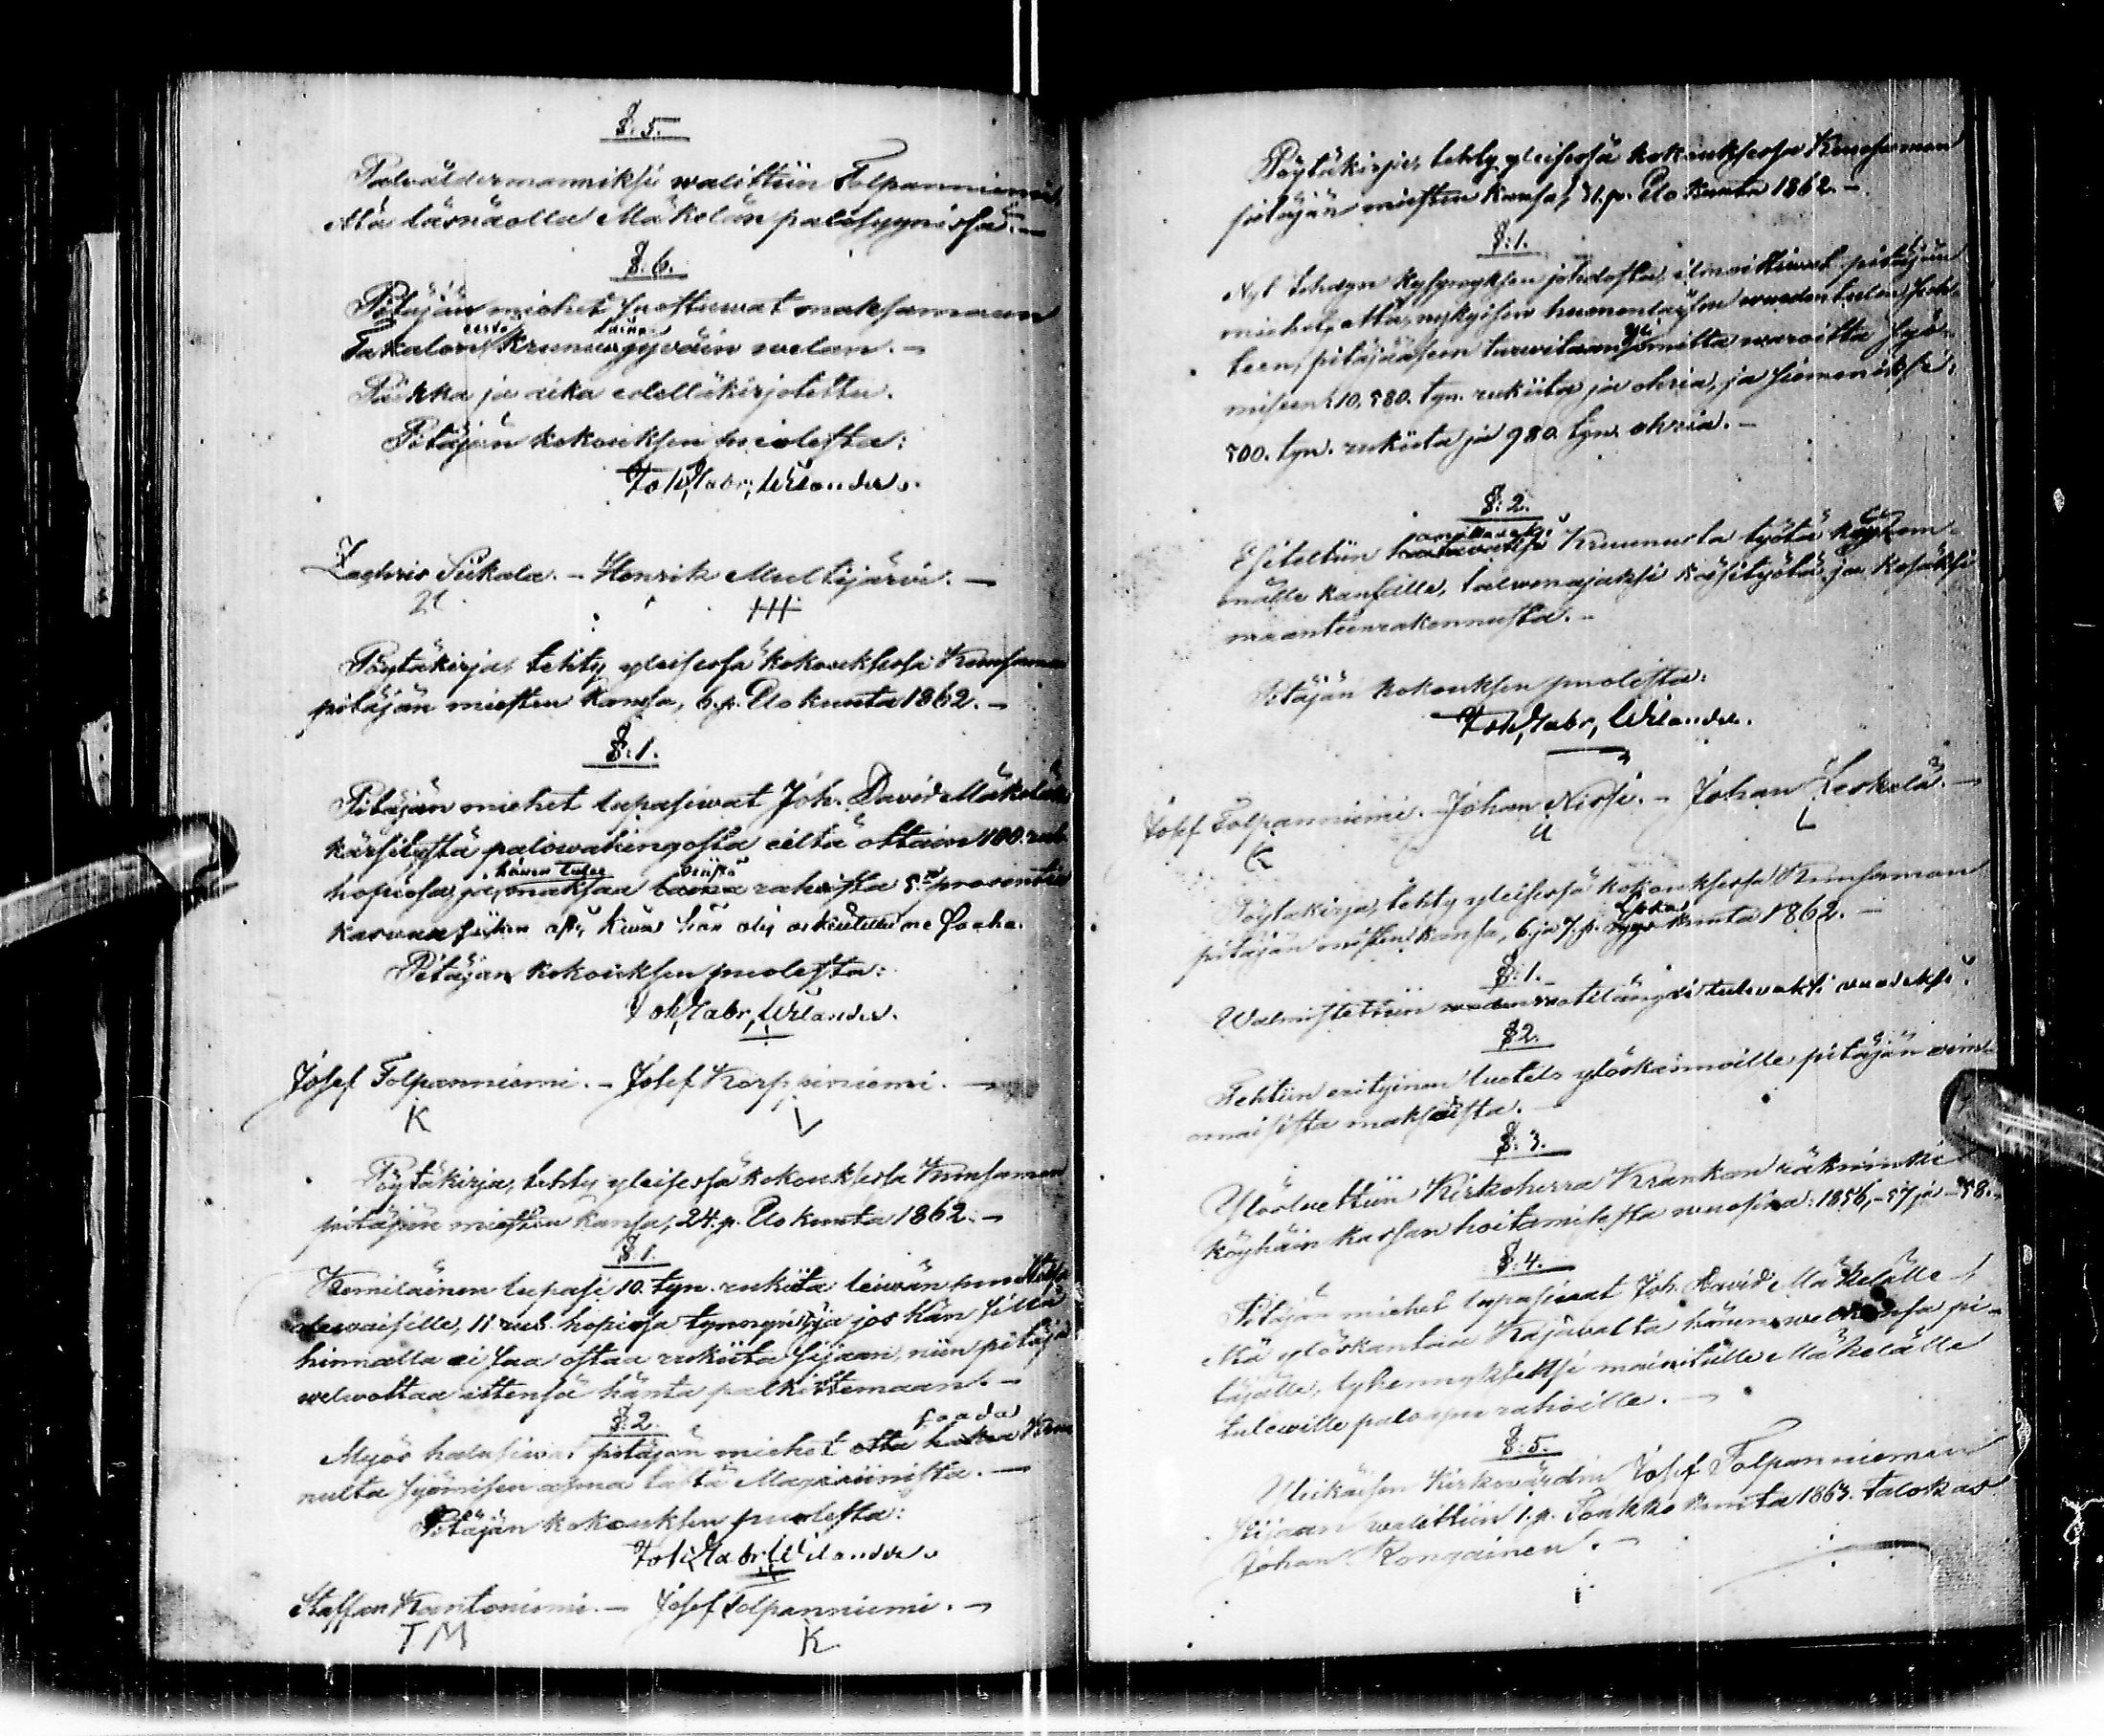 §. 5.
Paloåldermanniksi walittiin Tolpanniemi,
että läsnäolla Mäkelän palosyynissä. —
§. 6.
Pitäjän miehet suostuwat maksamaan
Takalon Kruunun jywäin welan. —
Paikka ja aika edelläkirjotettu.
Pitäjän kokouksen puolesta:
Joh, Gabr, Wilander.
Zachris Piikala. — Henrik Multijärvi. —
Pöytäkirja, tehty yleisessä kokouksessa Kuusamon
pitäjän miesten kansa, 6. p. Elo kuuta 1862. —
§. 1.
Pitäjän miehet lupasiwat Joh. David Mäkelän
kärsitystä palowahingosta eiltä ottain 100. rub.
hopiosa, ja, hänen tulee maksaa niistä rahoista 5. prosenttia
Pitäjän kokouksen puolesta:
Joh, Gabr, Wilander.
Josef Tolpanniemi. — Josef Korppiniemi. —
K L
Pöytäkirja, tehty yleisessä kokouksessa Kuusamon
pitäjän miesten kansa, 24. p. Elo kuuta 1862. —
§ 1.
Kemiläinen lupasi 10. tyn. rukiita leiwän puutteesa
olewaisille, 11 rub. hopiosa tynnyri, ja jos hän sillä
hinnalla ei saa ostaa rukiita sijaan, niin pitäjä
welwottaa ittensä häntä palkittemaan. —
§. 2.
Myös halusiwat pitäjän miehet saada Kruu-
nulta syömisen apua tästä Magasiinista. —
Pitäjän kokouksen puolesta:
Joh, Gabr, Wilander.
Staffan Kantoniemi. — Josef Tolpanniemi. —
TM K
Pöytäkirja, tehty yleisessä kokouksessa Kuusamon
pitäjän miesten kansa, 31. p. Elo kuuta 1862. —
§: 1.
Nyt tehdyn kysymyksen johdosta, ilmoittiwat pitäjän
miehet, että, nykyisen huomentaysen wuoden tulon suh-
teen, pitäjääsen tarwitaan yli omitta waroitta syö-
miseen: 10,580. tyn. rukiita ja ohria, ja siemeniksi:
500. tyn. rukiita ja 980. tyn. ohria. —
§: 2.
Esiteltiin anottawaksi Kruunulta työtä köyhem-
mälle kansalle, talwenajaksi käsityötä ja kesäksi
maanteenrakennusta. —
Pitäjän kokouksen puolesta:
Joh, Gabr, Wilander.
Josef Tolpanniemi. — Johan Nissi. — Johan Leskelä. —
K L
Pöytäkirja, tehty yleisessä kokouksessa Kuusamon
pitäjän miesten kansa, 6. ja 7. p. Loka kuuta 1862. —
§: 1.
Walmistettiin ruotilängdi tulewaksi wuodeksi.
§ 2.
Tehtiin erityinen luettelo ylöskannoille pitäjän omi-
omaisista maksuista. —
§: 3.
Ylösluettiin Kirkoherra Krankan räkninki
köyhäin kassan hoitamisesta wuosina: 1856, -57 ja -58. —
§: 4.
Pitäjän miehet lupasiwat Joh. David Mäkelälle
että ylöskantaa Kajawalta hänen welkansa pi-
täjälle, lyhennykseksi mainitulle Mäkelälle
tulewille paloapu rahoille. —
§: 5.
Ylikäisen Kirkowärdin Josef Tolpanniemen
sijaan walittiin 1. p. Toukko kuuta 1863. talokas
Johan Kongainen. —